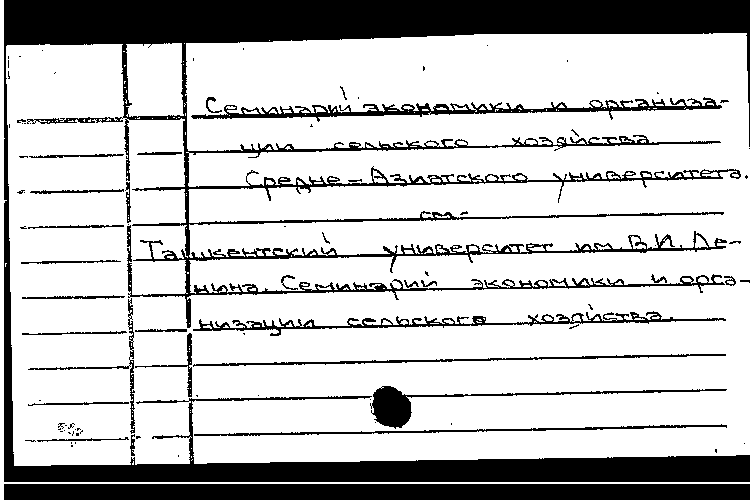 Семинарий экономики и организа-
ции сельского хозяйства
Средне-Азиатского университета.
см.
Ташкентский университет им. В.И. Ле-
нина. Семинарий экономики и орга-
низации сельского хозяйства.